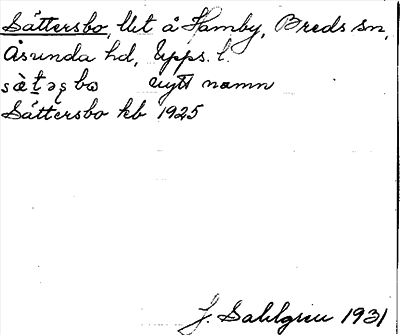 Sättersbo, llt å Hamby, Breds sn,
Åsunda hd, Upps. l.
sæ̀t̠əʂ bω nytt namn
Sättersbo kb 1925
J. Sahlgren 1931